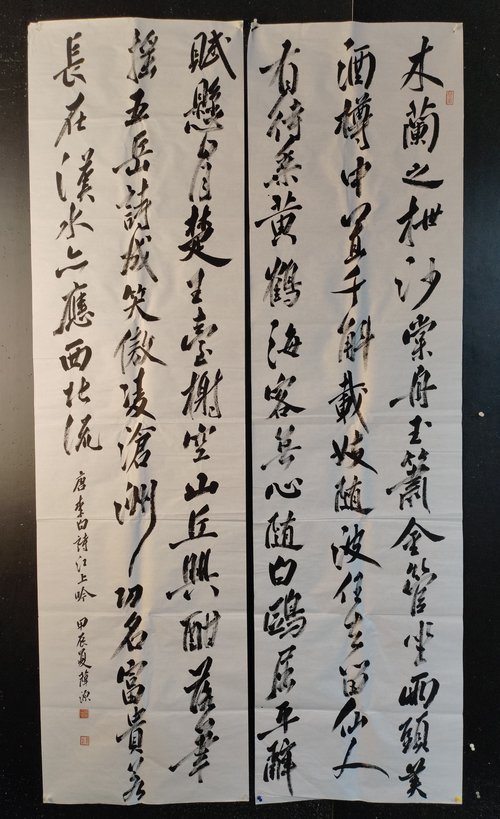 木蘭之枻沙棠舟玉簫金管坐兩頭美
酒樽中置千斛載妓随波任去留仙人
有待乘黄鶴海客無心随白鷗屈平辭
賦懸日月楚王臺榭空山丘興酣落筆
摇五岳詩成笑傲凌滄洲功名富貴若
長在漢水亦應西北流
唐李白詩江上吟 甲辰夏